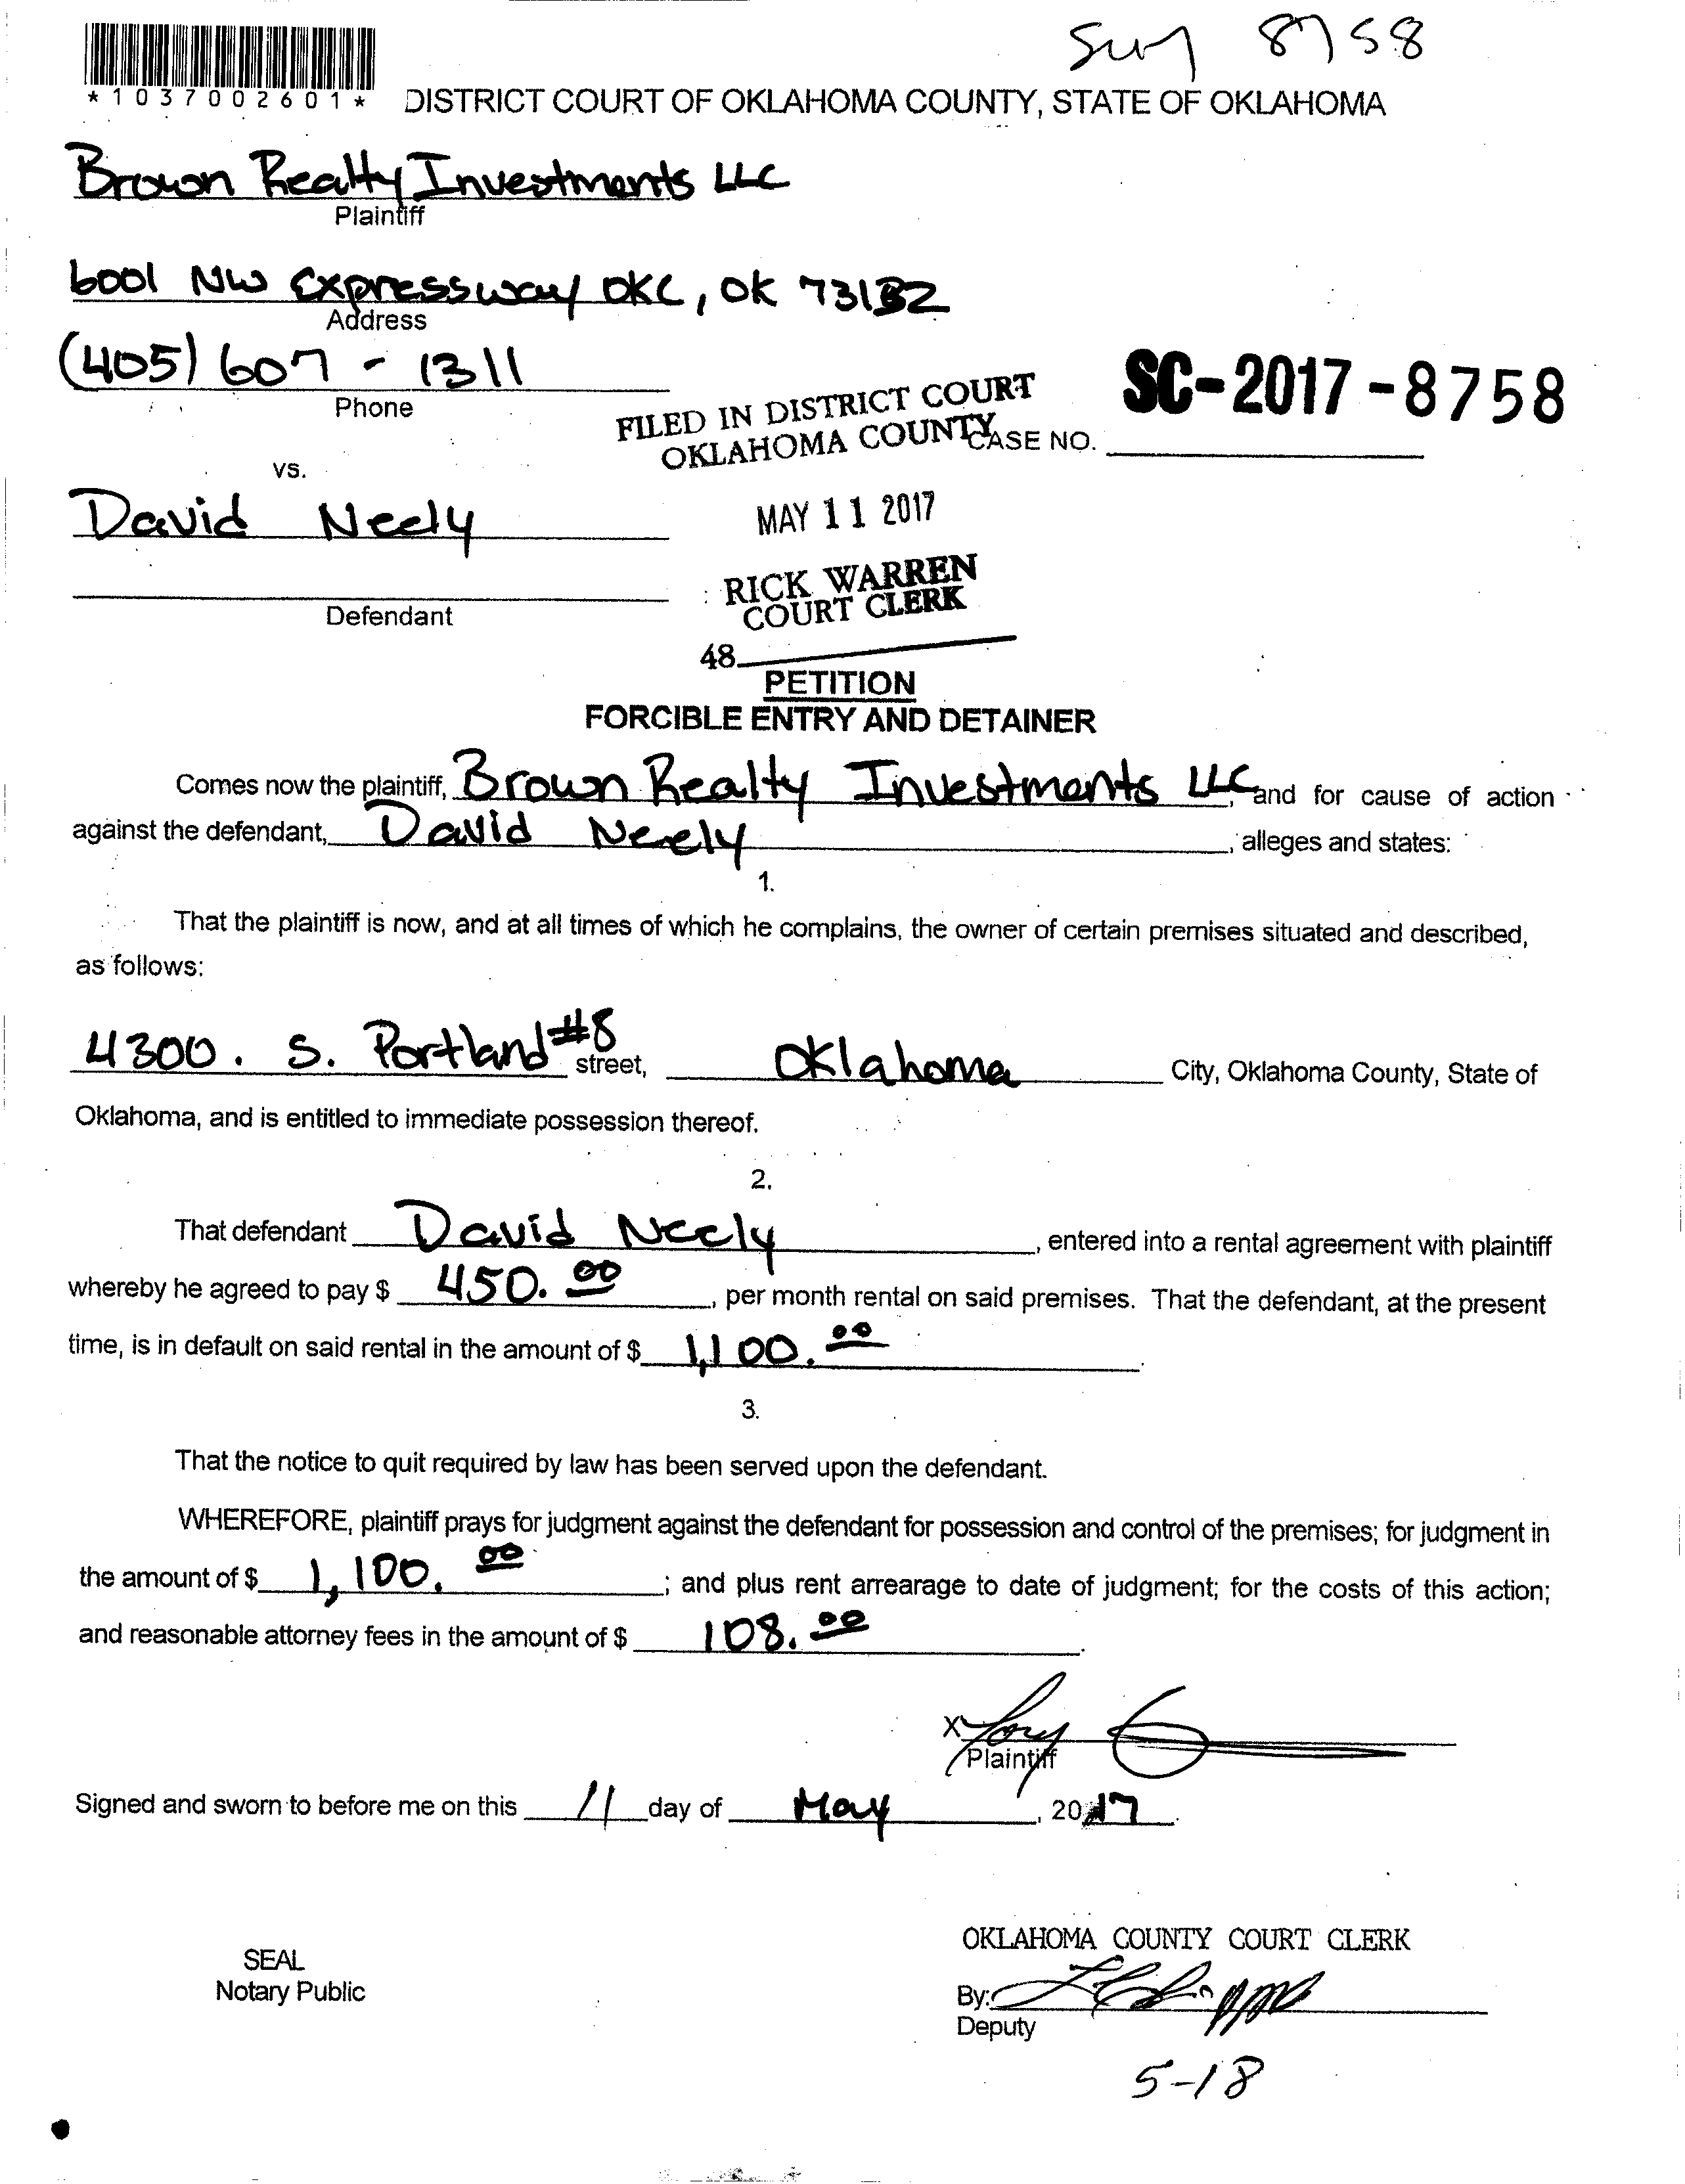 8758
*1037002601*
DISTRICT COURT OF OKLAHOMA COUNTY, STATE OF OKLAHOMA
Brown Realty Investments LLC
Plaintiff
6001 NW Expressway OKC, OK 73132
Address
(405) 607 - 1311
Phone
SC-2017-8758
FILED IN DISTRICT COURT
OKLAHOMA COUNTY
CASE NO.
vs.
David Neely
MAY 11 2017
RICK WARREN
COURT CLERK
Defendant
48
PETITION
FORCIBLE ENTRY AND DETAINER
Comes now the plaintiff, Brown Realty Investments LLC, and for cause of action
against the defendant, David Neely, alleges and states:
1.
That the plaintiff is now, and at all times of which he complains, the owner of certain premises situated and described,
as follows:
4300. S. Portland #8 street, Oklahoma City, Oklahoma County, State of
Oklahoma, and is entitled to immediate possession thereof.
2.
That defendant David Neely, entered into a rental agreement with plaintiff
whereby he agreed to pay $ 450.00, per month rental on said premises. That the defendant, at the present
time, is in default on said rental in the amount of $ 1,100.00.
3.
That the notice to quit required by law has been served upon the defendant.
WHEREFORE, plaintiff prays for judgment against the defendant for possession and control of the premises; for judgment in
the amount of $ 1,100.00; and plus rent arrearage to date of judgment; for the costs of this action;
and reasonable attorney fees in the amount of $ 108.00.
X
Plaintiff
Signed and sworn to before me on this 11 day of May, 2017.
OKLAHOMA COUNTY COURT CLERK
SEAL
Notary Public
By:
Deputy
5-18